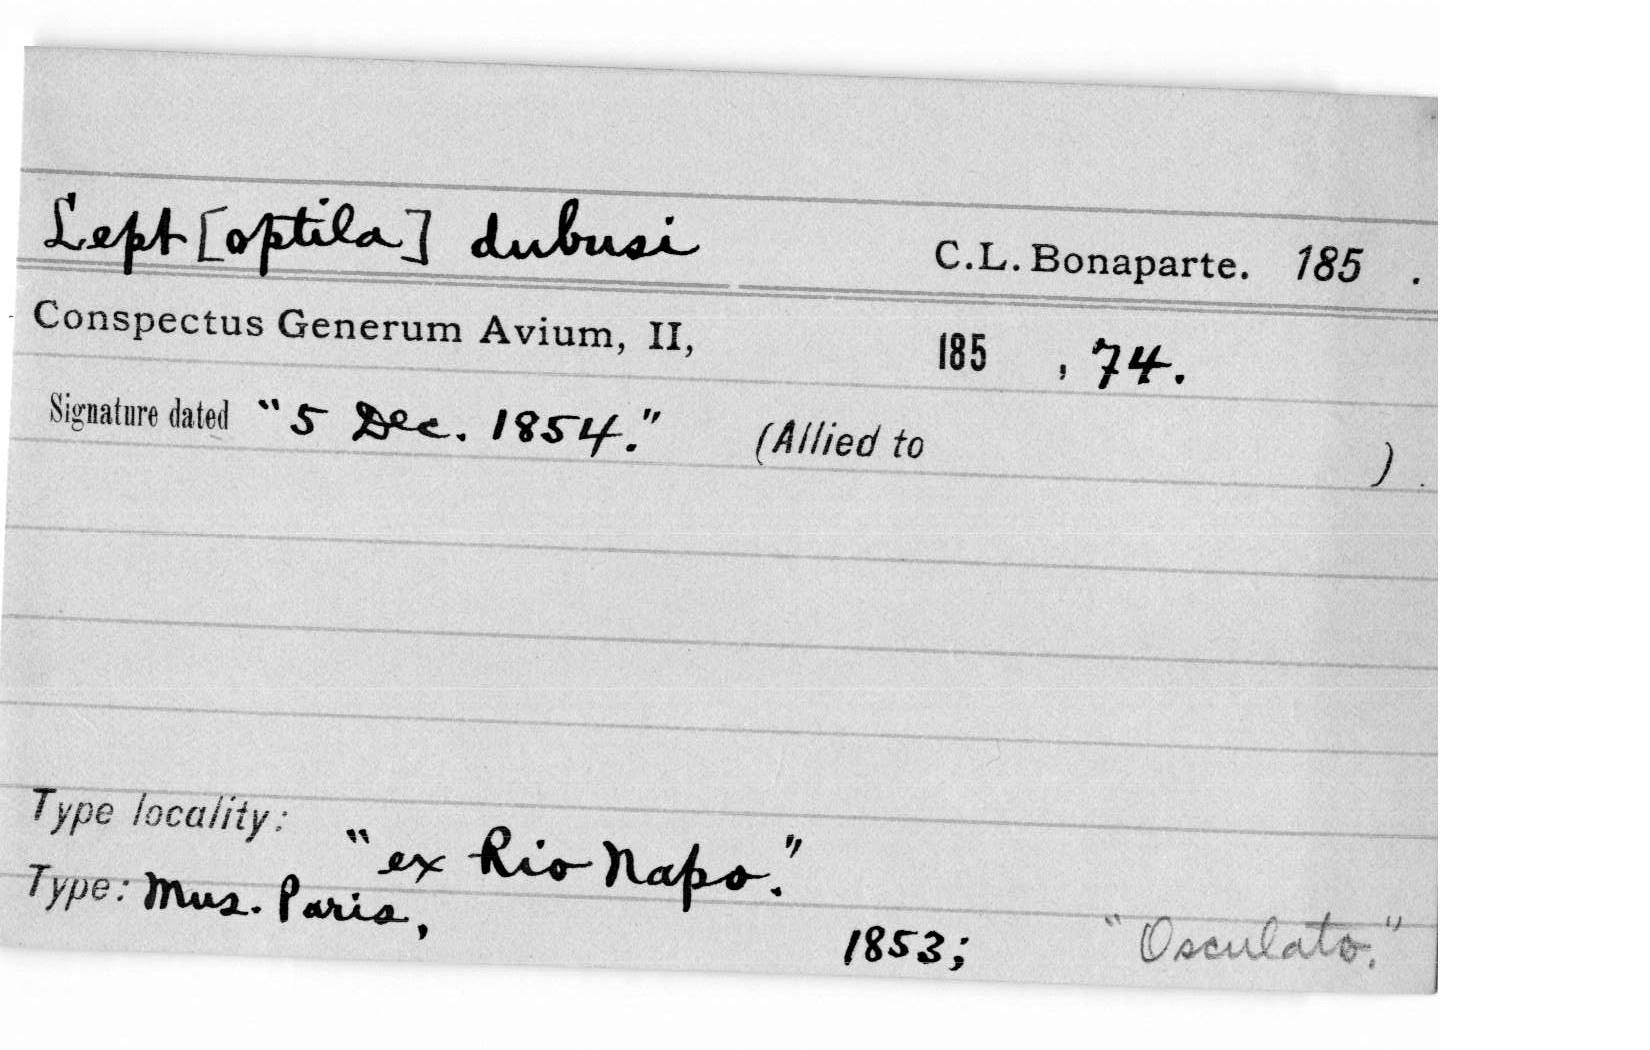 Lept[optila] dubusi C.L. Bonaparte. 185 .
Conspectus Generum Avium, II, 185 , 74.
Signature dated "5 Dec. 1854." (Allied to ) .
Type locality: "ex Rio Napo."
Type: Mus. Paris, 1853; "Osculato."